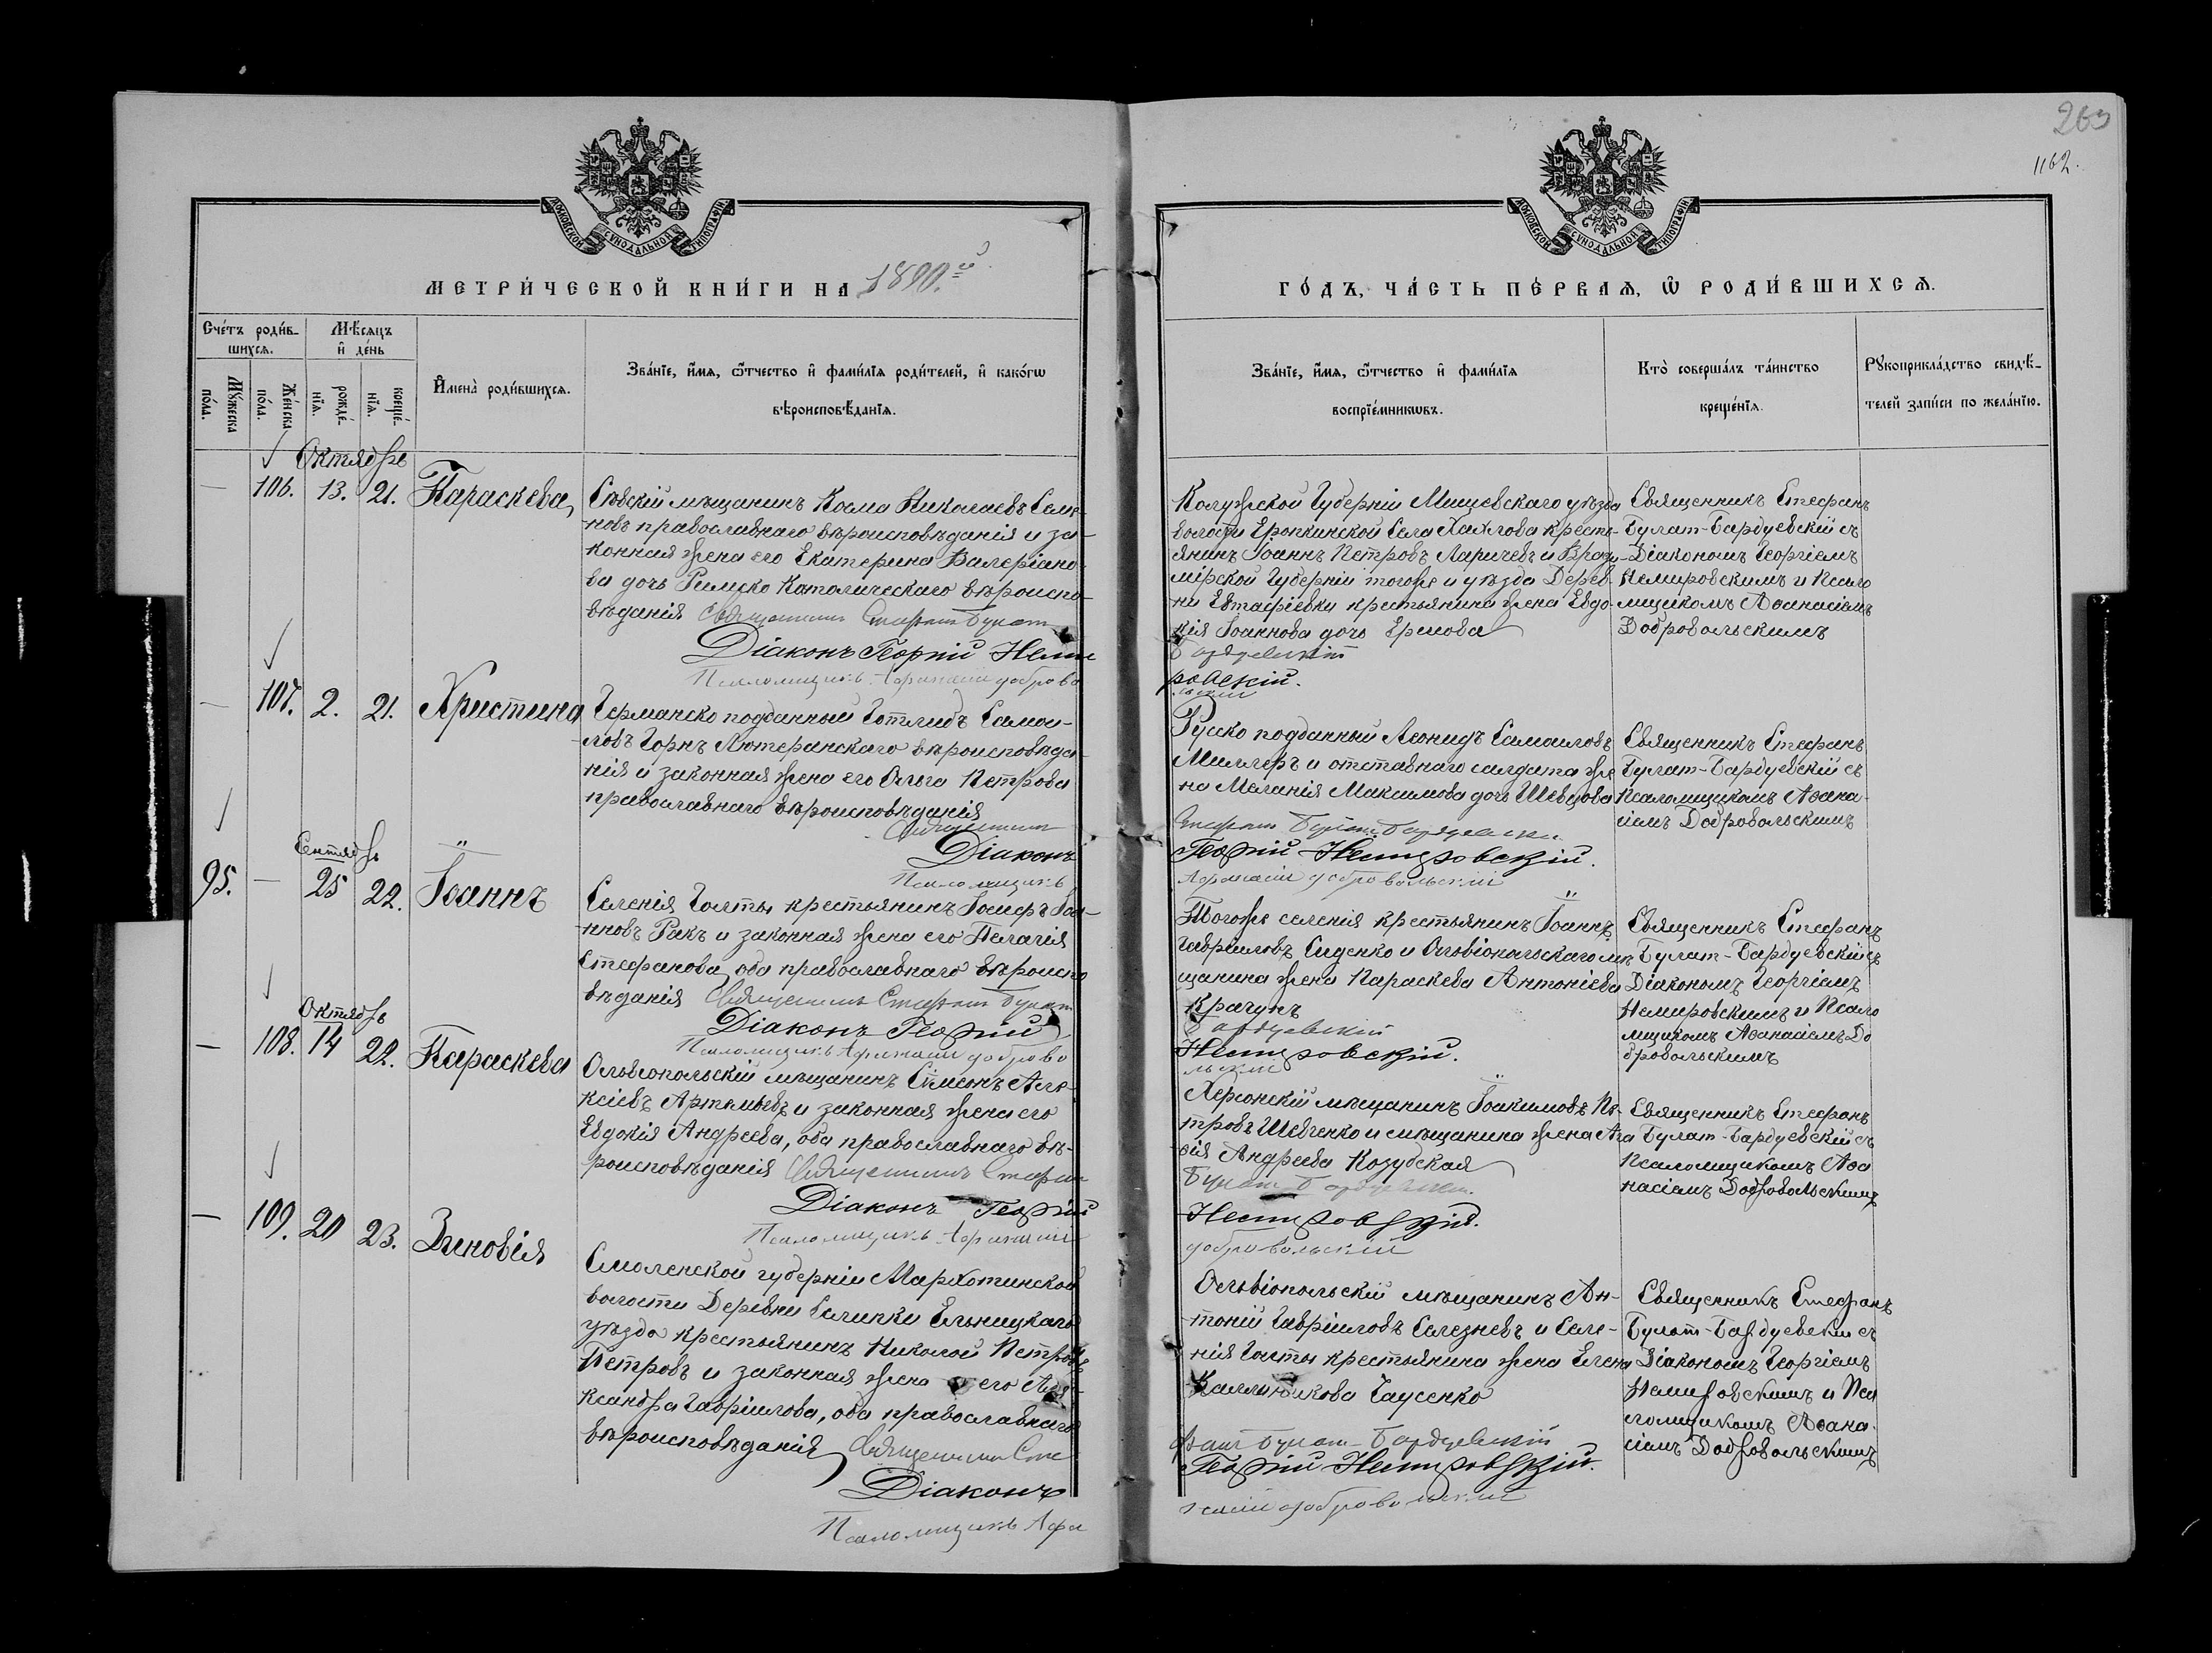 263
1162.
МОСКОВСКОЙ СѴНОДАЛЬНОЙ ТИПОГРАФІИ
МОСКОВСКОЙ СѴНОДАЛЬНОЙ ТИПОГРАФІИ
МЕТРИ́ЧЕСКОЙ КНИ́ГИ НА 1890.й
ГО́ДЪ, ЧА́СТЬ ПЕ́РВАѦ, Ѡ҆ РОДИ́ВШИХСѦ.
Сче́тъ роди́в-
шихсѧ.
Мѣ́сѧцъ
и҆ де́нь
Мꙋ́жеска
по́ла.
Же́нска
по́ла.
рожде́-
нїѧ.
креще́-
нїѧ.
И҆мена̀ роди́вшихсѧ.
Зва́нїе, и҆́мѧ, ѻ҆́тчество и҆ фами́лїѧ роди́телей, и҆ како́гѡ
вѣроисповѣ́данїѧ.
Зва́нїе, и҆́мѧ, ѻ҆́тчество и҆ фами́лїѧ
воспрїе́мникѡвъ.
Кто̀ соверша́лъ та́инство
креще́нїѧ.
Рꙋкоприкла́дство свидѣ́-
телей за́писи по жела́нїю.
Октябрь
— 106. 13. 21. Параскева,
Сѣвскій мѣщанинъ Косма Николаевъ Семе-
новъ православнаго вѣроисповѣданія и за-
конная жена его Екатерина Валеріано-
ва дочь Римско Католическаго вѣроиспо-
вѣданія Священникъ Стефанъ Булат
Діаконъ Георгій Неми
Псаломщикъ Афанасій доброво
Калужской Губерніи Мищевскаго уѣзда
волости Еропкинской Села Хахлова кресть-
янинъ Іоаннъ Петровъ Ларичевъ и Влади-
мірской Губерніи тогоже и уѣзда Дерев-
ни Евтафіевки крестьянина жена Евдо-
кія Іоаннова дочь Ермова
Бардуевскій
ровскій.
льскій
Священникъ Стефанъ
Булат-Бардуевскій съ
Діакономъ Георгіемъ
Немировскимъ и Псало
мщикомъ Аѳанасіемъ
Добровольскимъ
— 107. 2. 21. Христина
Германско подданный Готлибъ Самои-
ловъ Горнъ Лютеранскаго вѣроисповѣда-
нія и законная жена его Ольга Петрова
православнаго вѣроисповѣданія
Священникъ
Діаконъ
Псаломщикъ
Русско подданный Леонидъ Самоиловъ
Миллеръ и отставнаго солдата же
на Меланія Максимова дочь Шевцова
Стефанъ Булат-Бардуевскій
Георгій Немировскій.
Афанасій добровольскій
Священникъ Стефанъ
Булат-Бардуевскій съ
Псаломщикомъ Аѳана-
сіемъ Добровольскимъ
Сентябрь
95. — 25 22. Іоаннъ
Селенія Голты крестьянинъ Іосифъ Іоа-
нновъ Ракъ и законная жена его Пелагія
Стефанова, оба православнаго вѣроиспо
вѣданія Священникъ Стефанъ Булат
Діаконъ Георгій
Псаломщикъ Афанасій доброво
Тогоже селенія крестьянинъ Іоаннъ
Гавріиловъ Сиденко и Ольвіопольскаго мѣ
щанина жена Параскева Антоніева
Крачунъ
Бардуевскій
Немировскій.
льскій
Священникъ Стефанъ
Булат-Бардуевскій съ
Діакономъ Георгіемъ
Немировскимъ и Псало
мщикомъ Аѳанасіемъ До
бровольскимъ
Октябрь
— 108. 14 22. Параскева
Ольвіопольскій мѣщанинъ Сѵмеонъ Але-
ксіевъ Артемьевъ и законная жена его
Евдокія Андреева, оба православнаго вѣ-
роисповѣданія Священникъ Стефан
Діаконъ Георгій
Псаломщикъ Афанасій
Херсонскій мѣщанинъ Іоакимовъ Пе-
тровъ Шевченко и мѣщанина жена Ага
ѳія Андреева Козубская
Булат-Бардуевскій.
Немировскій.
добровольскій
Священникъ Стефанъ
Булат-Бардуевскій съ
Псаломщикомъ Аѳа
насіемъ Добровольскимъ
— 109. 20 23. Зиновія
Смоленской губерніи Мархотинской
волости Деревни Селипки Ельницкаго
уѣзда крестьянинъ Николай Петровъ
Петровъ и законная жена его Але-
ксандра Гавріилова, оба православнаго
вѣроисповѣданія Священникъ Сте
Діаконъ
Псаломщикъ Афа
Ольвіопольскій мѣщанинъ Ан-
тоній Гавріиловъ Селезневъ и Селе-
нія Голты крестьянина жена Елена
Каллиникова Гаусенко
фанъ Булат-Бардуевскій
Георгій Немировскій.
насій добровольскій
Священникъ Стефанъ
Булат-Бардуевскій съ
Діакономъ Георгіемъ
Немировскимъ и Пса
ломщикомъ Аѳана-
сіемъ Добровольскимъ